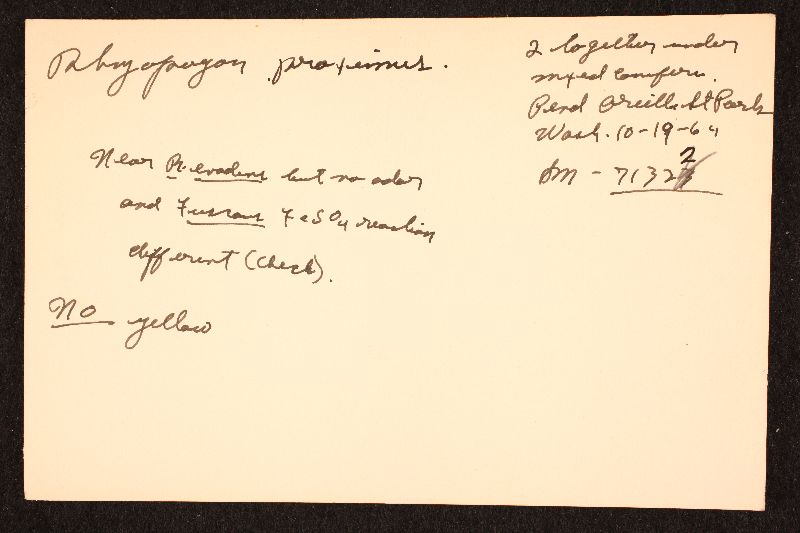 Rhizopogon proximus.
2 together under
mixed conifers.
Pend Oreille St Park
Wash. 10-19-64
SM - 71322
Near R. evadens but no odor
and Fuscous FeSO4 reaction
different (check).
No yellow